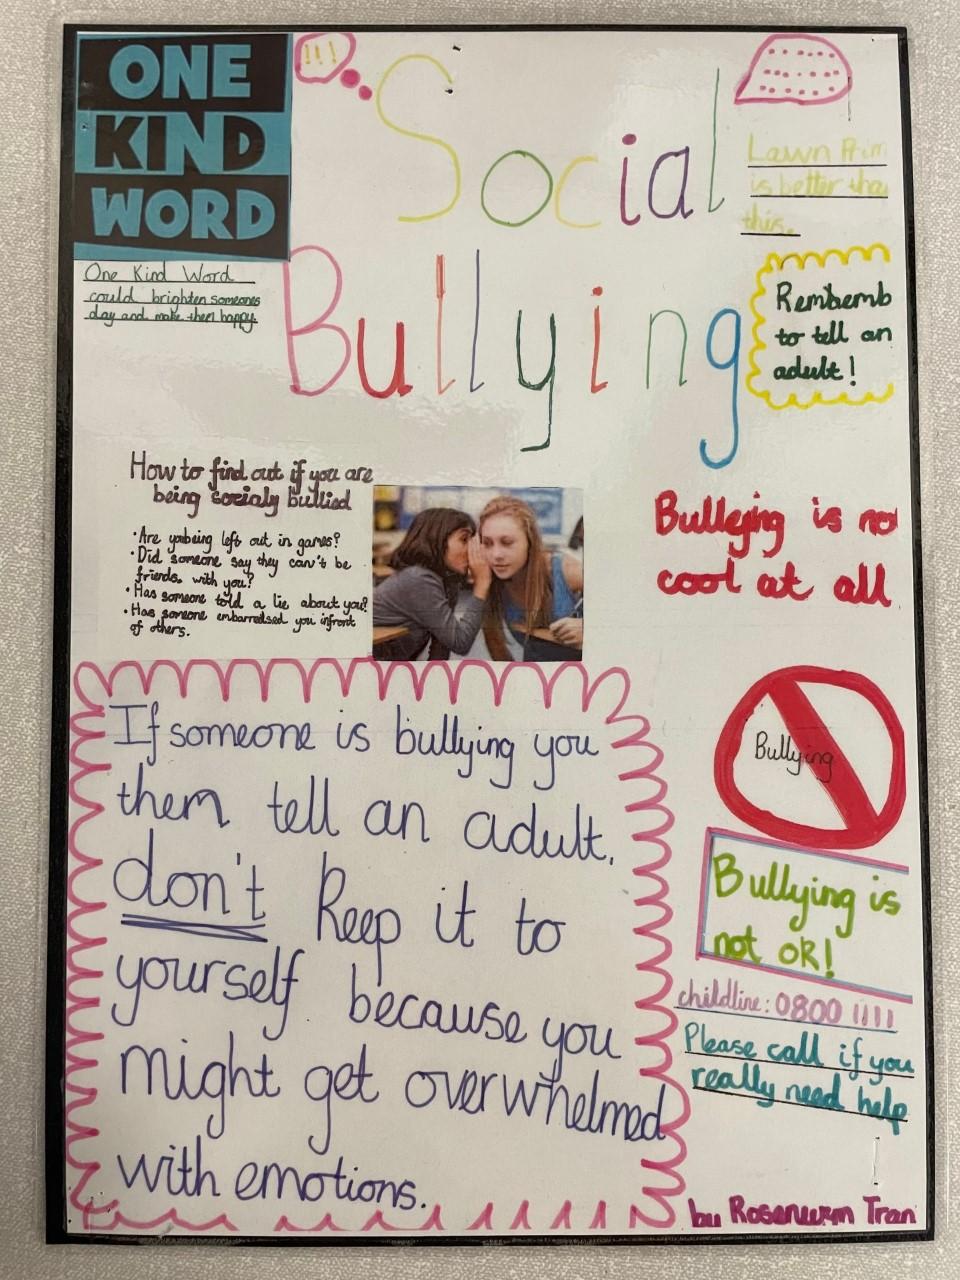 ONE
KIND
WORD
One Kind Word
could brighten someones
day and make them happy.
!!!
Social
Bullying
Lawn Prim
is better tha
this.
Rembemb
to tell an
adult!
How to find out if you are
being socialy bullied
• Are you being left out in games?
• Did someone say they can't be
friends. with you?
• Has someone told a lie about you?
• Has someone embarredsed you infront
of others.
Bulleying is no
cool at all
If someone is bullying you
them tell an adult.
don't Keep it to
yourself because you
might get overwhelmed
with emotions.
Bullying
Bullying is
not ok!
childline: 0800 1111
Please call if you
really need help
by Tran